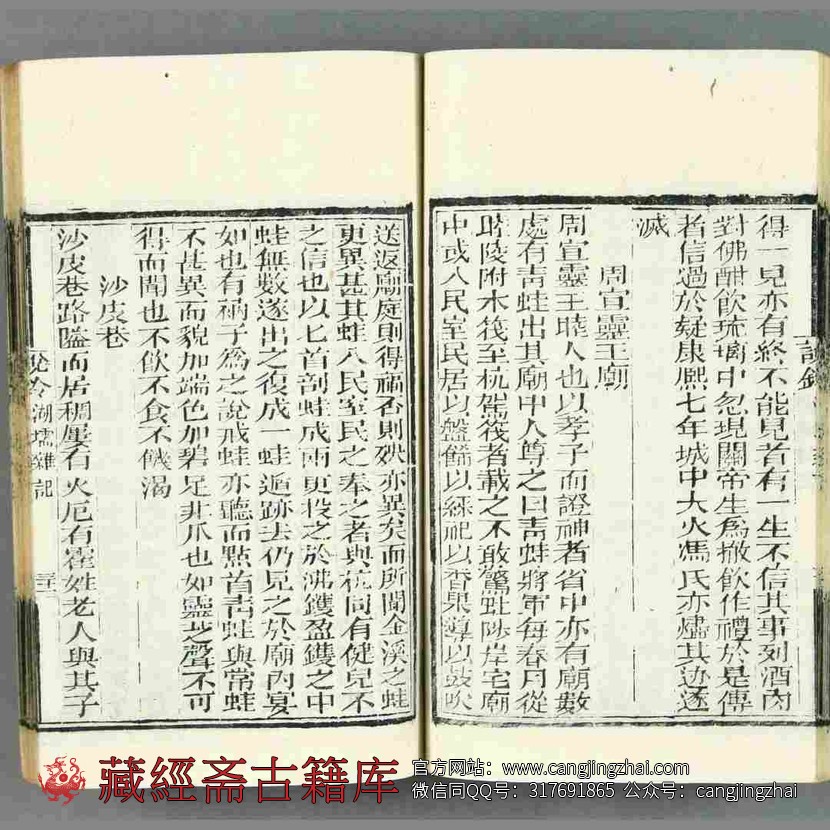 得一見亦有終不能見者有一生不信其事列酒肉
對佛酣飲琉璃中忽現關帝生為撤飲作禮於是傳
者信過於疑康熙七年城中大火馮氏亦燼其迹遂
滅
周宣靈王廟
周宣靈王睦人也以孝子而證神者省中亦有廟數
處有靑蛙出其廟中人尊之曰靑蛙將軍每春月從
睦陵附木筏至杭駕筏者載之不敢驚蚍陟岸宅廟
中或入民室民居以盤餙以綵祀以香果導以鼓吹
送返廟庭則得福否則殃亦異矣而所聞金溪之蛙
更異甚其蛙入民室民之奉之者與杭同有健兒不
之信也以匕首剖蛙成兩更投之於沸鑊盈鑊之中
蛙無數遂出之復成一蛙遁跡去仍見之於廟內宴
如也有衲子為之說戒蛙亦聽而點首靑蛙與常蛙
不甚異而貌加端色加碧足非爪也如靈芝聲不可
得而聞也不飲不食不饑渴
沙皮巷
沙皮巷路隘而居稠屢有火厄有崔姓老人與其子
湖壖雜記
藏經斋古籍库
官方网站：www.cangjingzhai.com
微信同QQ号：317691865 公众号：cangjingzhai